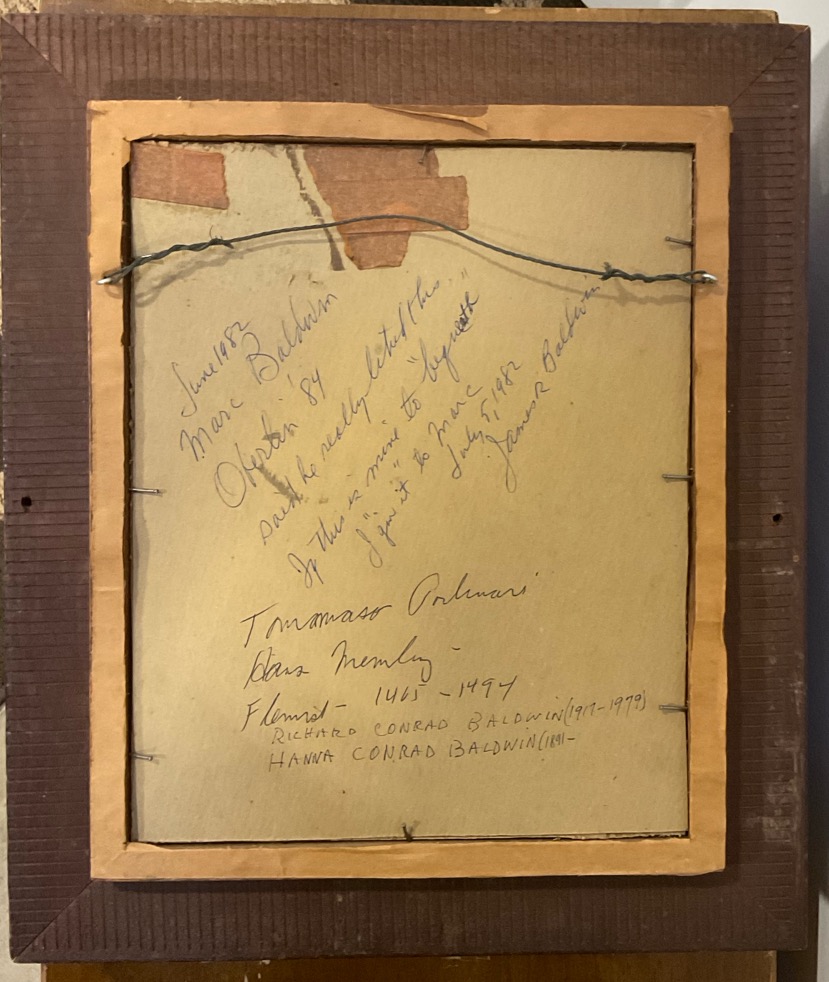 June 1982
Marc Baldwin
Oberlin '84
said he really liked this.
If this is mine to "bequeath"
I "give it" to Marc
July 5, 1982
James R Baldwin
Tommaso Portinari
Hans Memling -
Flemish - 1465 - 1494
RICHARD CONRAD BALDWIN (1917-1979)
HANNA CONRAD BALDWIN (1891-